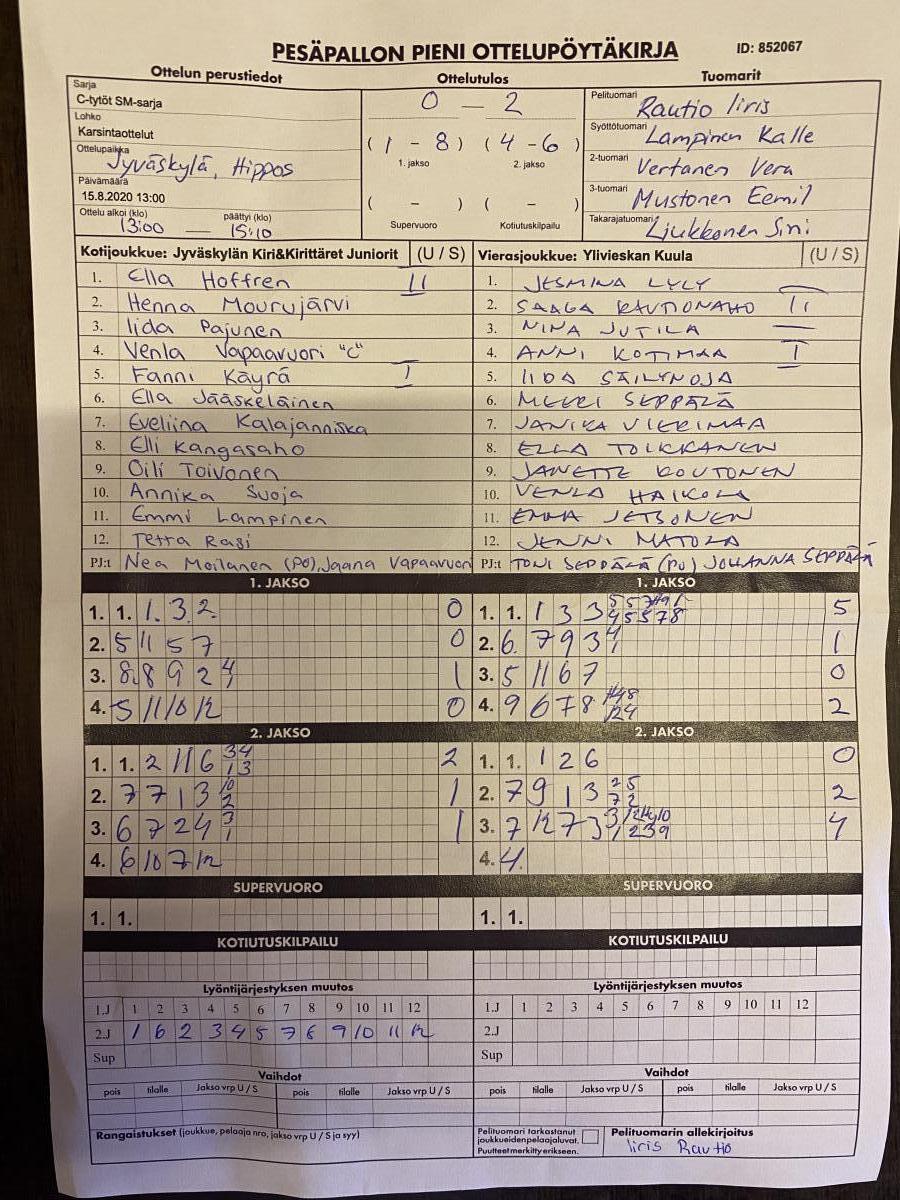 PESÄPALLON PIENI OTTELUPÖYTÄKIRJA ID: 852067
Ottelun perustiedot Ottelutulos Tuomarit
Sarja
C-tytöt SM-sarja
Lohko
Karsintaottelut
Ottelupaikka
Jyväskylä, Hippos
Päivämäärä
15.8.2020 13:00
Ottelu alkoi (klo) päättyi (klo)
13:00 — 15:10
0 — 2
(1 - 8) (4 - 6)
1. jakso 2. jakso
( - ) ( - )
Supervuoro Kotiutuskilpailu
Pelituomari Rautio Iiris
Syöttötuomari Lampinen Kalle
2-tuomari Vertanen Vera
3-tuomari Mustonen Eemil
Takarajatuomari Liukkonen Sini
Kotijoukkue: Jyväskylän Kiri&Kirittäret Juniorit (U / S) Vierasjoukkue: Ylivieskan Kuula (U / S)
1. Ella Hoffren II 1. JESMINA LYLY
2. Henna Mourujärvi 2. SAAGA RAUTIONAHO II
3. Iida Pajunen 3. NINA JUTILA
4. Venla Vapaavuori "C" 4. ANNI KOTIMAA I
5. Fanni Käyrä I 5. IIDA SÄILYNOJA
6. Ella Jääskeläinen 6. MEERI SEPPÄLÄ
7. Eveliina Kalajanniska 7. JANIKA VIERIMAA
8. Elli Kangasaho 8. ELLA TOIKKANEN
9. Oili Toivonen 9. JANETTE KOUTONEN
10. Annika Suoja 10. VENLA HAIKOLA
11. Emmi Lampinen 11. EMMA JETSONEN
12. Tetta Rasi 12. JENNI MATOLA
PJ:t Nea Moilanen (PO), Jaana Vapaavuori PJ:t TONI SEPPÄLÄ (PU) JOHANNA SEPPÄLÄ
1. JAKSO 1. JAKSO
1. 1. 1. 3 2 0 1. 1. 1 3 3 5
2. 5 11 5 7 0 2. 6 7 9 3 4/1 1
3. 8 8 9 2 4/1 1 3. 5 11 6 7 0
4. 5 11 10 12 0 4. 9 6 7 8 2
2. JAKSO 2. JAKSO
1. 1. 2 11 6 3/1 4/3 2 1. 1. 1 2 6 0
2. 7 7 1 3 10/2 1 2. 7 9 1 3 2/7 5/2 2
3. 6 7 2 4 3/1 1 3. 7 12 7 3 4
4. 6 10 7 12 4. 4.
SUPERVUORO SUPERVUORO
1. 1. 1. 1.
KOTIUTUSKILPAILU KOTIUTUSKILPAILU
Lyöntijärjestyksen muutos Lyöntijärjestyksen muutos
1.J 1 2 3 4 5 6 7 8 9 10 11 12 1.J 1 2 3 4 5 6 7 8 9 10 11 12
2.J 1 6 2 3 4 5 7 8 9 10 11 12 2.J
Sup Sup
Vaihdot Vaihdot
pois tilalle Jakso vrp U / S pois tilalle Jakso vrp U / S pois tilalle Jakso vrp U / S pois tilalle Jakso vrp U / S
Rangaistukset (joukkue, pelaaja nro, jakso vrp U / S ja syy)
Pelituomari tarkastanut
joukkueiden pelaajaluvat.
Puutteet merkitty erikseen.
Pelituomarin allekirjoitus
Iiris Rautio